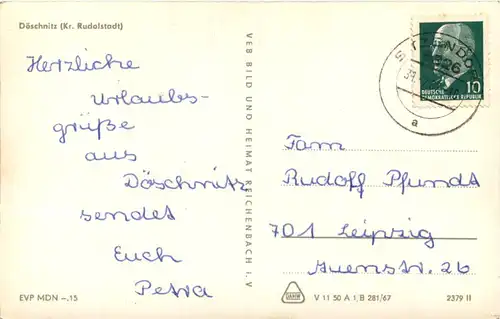 Döschnitz (Kr. Rudolstadt)
Herzliche
Urlaubs-
grüße
aus
Döschnitz
sendet
Euch
Petra
EVP MDN -.15
VEB BILD UND HEIMAT REICHENBACH I. V
DEUTSCHE
DEMOKRATISCHE REPUBLIK
10
a
Fam
Rudolf Pfundt
701 Leipzig
Auenstr. 26
V 11 50 A 1/B 281/67
2379 II